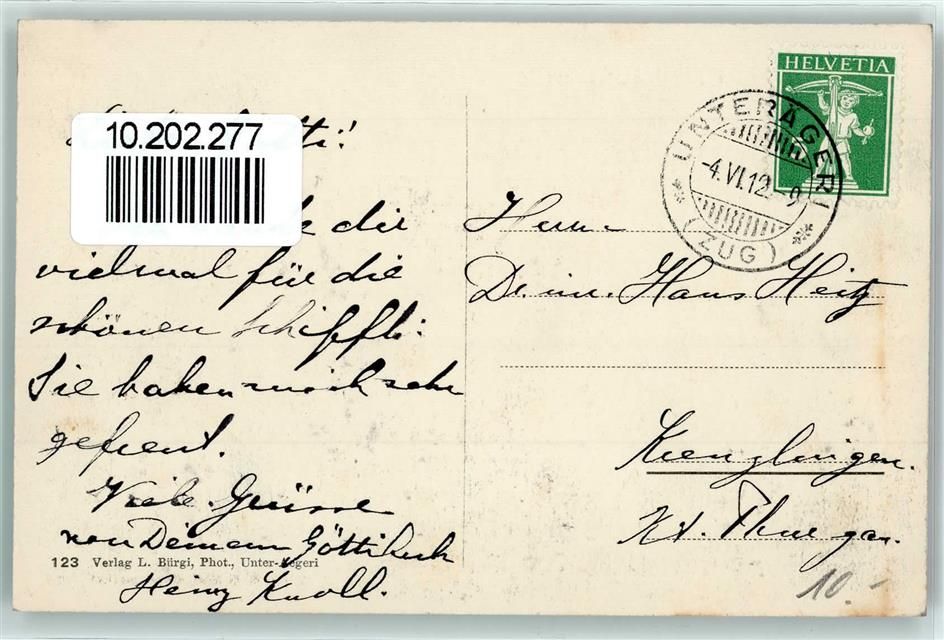 10.202.277
tti!
dir
vielmal für die
schönen Schiffli:
Sie haben mich sehr
gefreut.
Viele Grüsse
von Deinem Göttibub
Heinz Knoll.
123 Verlag L. Bürgi, Phot., Unter-Aegeri
HELVETIA
UNTERÄGERI
-4.VI.12.-9
(ZUG)
Herrn
Dr. iur. Hans Heitz
Kreuzlingen.
Kt. Thurgau.
10.-